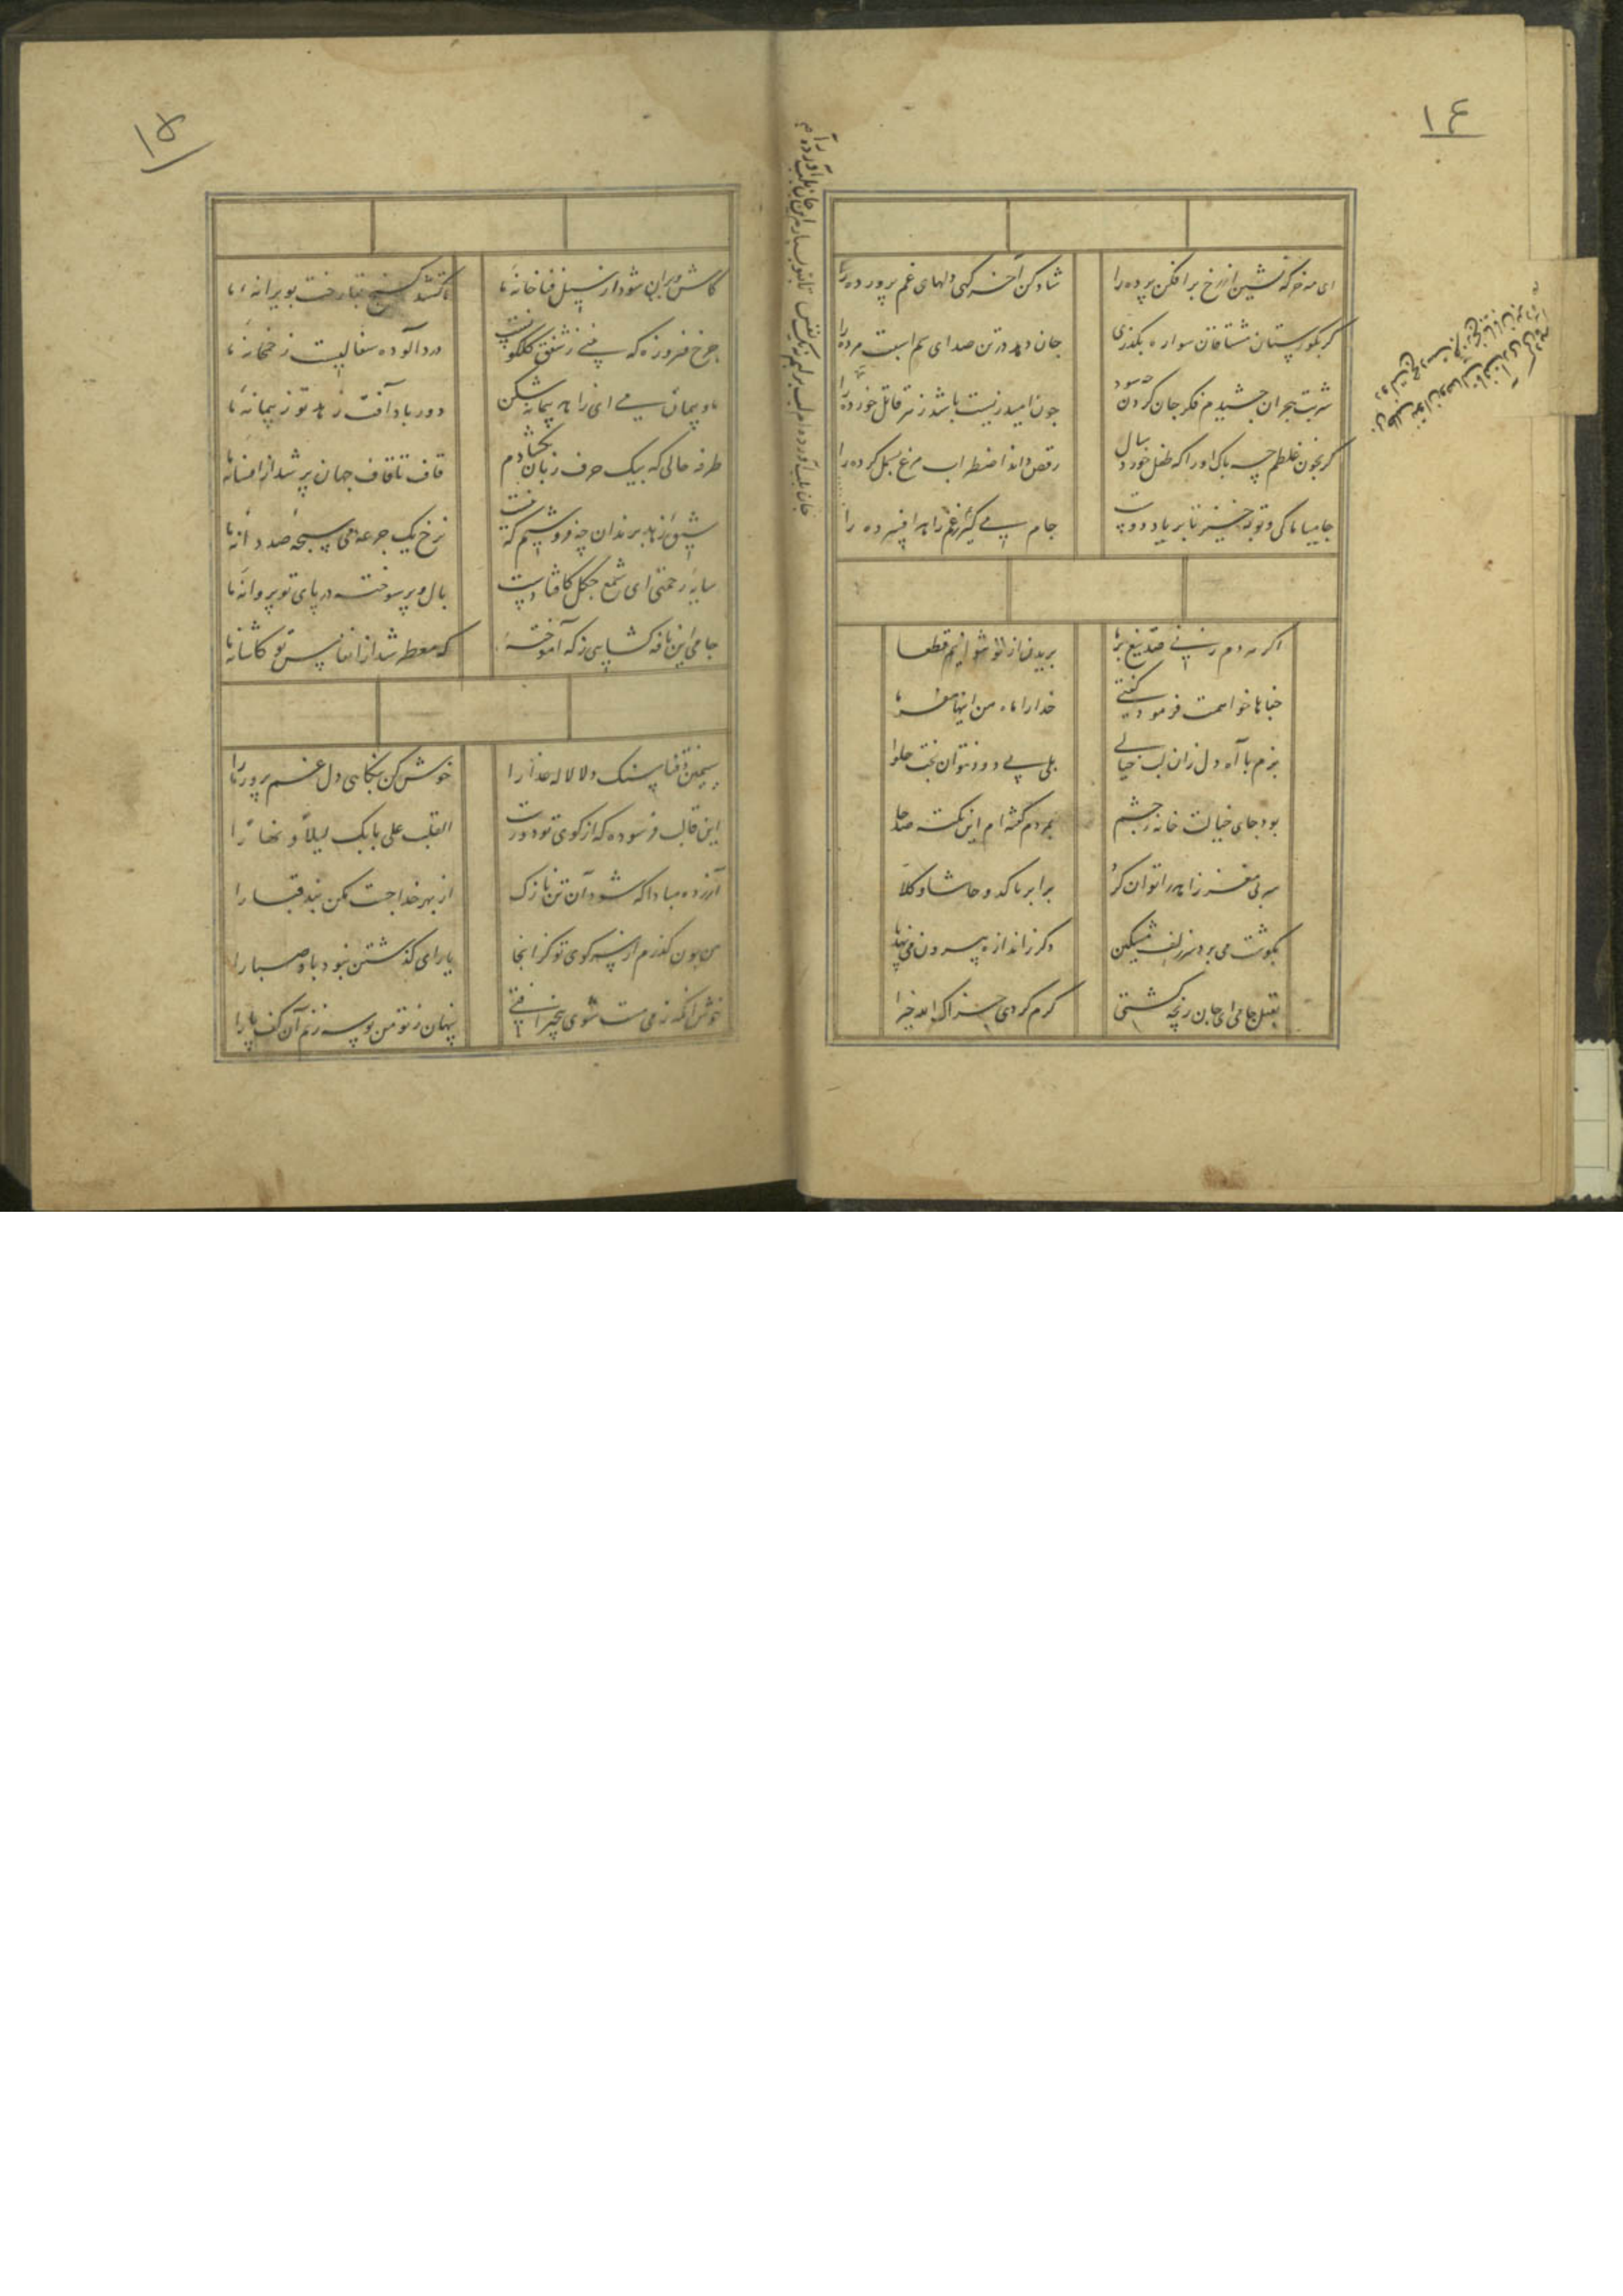 ١٤
ای مه خرگه نشین از رخ برافکن پرده را
شاد کن آخر گهی دلهای غم پرورده را
گر بگورستان مشتاقان سواره بگذری
جان دهد در تن صدای سم اسبت مرده را
شربت هجران چشیدم فکر جان کردن چه سود
چون امید زیست باشد زهر قاتل خورده را
گر بخون غلطم چه باک او را که طفل خورد سال
رقص داند اضطراب مرغ بسمل کرده را
جامیا تا کی توبه خیز تا بر یاد دوست
جام می گیریم زاهد افسرده را
اگر هر دم زنی صد تیغ بر ما
بریدن از تو نتوانیم قطعا
جفاها خواهمت فرمود گفتی
خدا را ماه من اینها مفرما
پزم با آه دل زان لب خیالی
بلی بی دود نتوان پخت حلوا
بود جای خیالت خانه چشم
بمردم گفته ام این نکته صد جا
سر بی مغز زاهد را توان کرد
برابر با کدو حاشا و کلا
بگوشت می برد سر زلف مشکین
دگر ز اندازه بیرون می نهد پا
بقتل جامی ای جان رنجه گشتی
کرم کردی جزاک الله خیرا
جان بلب آورده ام لب بر لبم نه یک نفس تا بتو بسپارم این جان بلب آورده را
١٥
کاش ویران شود از سیل فنا خانه ما
تا کشد گنج بقا رخت بویرانه ما
چرخ فیروزه که بینی ز شفق گلگونست
درد آلوده سفالیست ز خمخانه ما
ما و پیمان می ای زاهد پیمانه شکن
دور باد آفت زهد تو ز پیمانه ما
طرفه حالی که بیک حرف زبان نگشادم
قاف تا قاف جهان پر شد از افسانه ما
سبق زهد برندان چه فروشیم که رفت
نرخ یک جرعه می سبحه صد دانه ما
سایه رحمتی ای شمع چگل کافتادست
بال و پر سوخته در پای تو پروانه ما
جامی این نافه گشایی ز که آموخته
که معطر شد از انفاس تو کاشانه ما
سیمین ذقنا سنگ دلا لاله عذارا
خوش کن بنگاهی دل غم پرور ما را
این قالب فرسوده گر از کوی تو دورست
القلب علی بابک لیلا و نهارا
آزرده مبادا که شود آن تن نازک
از بهر خدا چست مکن بند قبا را
من چون گذرم از سر کوی تو کز آنجا
یارای گذشتن نبود باد صبا را
خوش آنکه ز می مست شوی بیخبر افتی
پنهان ز تو من بوسه زنم آن کف پا را